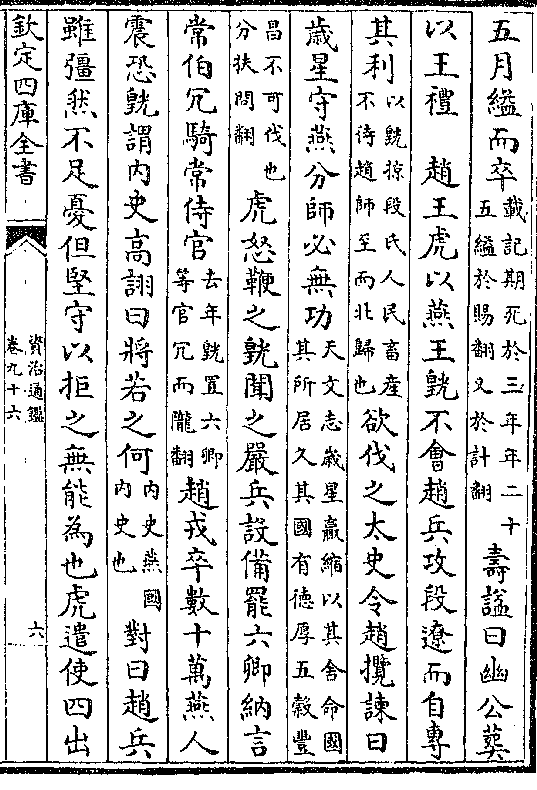 五月縊而卒載記期死於三年年二十五縊於賜翻又於計翻壽諡曰幽公葬
以王禮　趙王虎以燕王皝不會趙兵攻段遼而自專
其利以皝掠段氏人民畜産不待趙師至而北歸也欲伐之太史令趙攬諫曰
歲星守燕分師必無功天文志歲星贏縮以其舍命國其所居久其國有德厚五穀豐
昌不可伐也分扶問翻虎怒鞭之皝聞之嚴兵設備罷六卿納言
常伯冗騎常侍官去年皝置六卿等官冗而隴翻趙戎卒數十萬燕人
震恐皝謂内史高詡曰將若之何内史燕國内史也對曰趙兵
雖彊然不足憂但堅守以拒之無能為也虎遣使四出
欽定四庫全書
資治通鑑
卷九十六
六